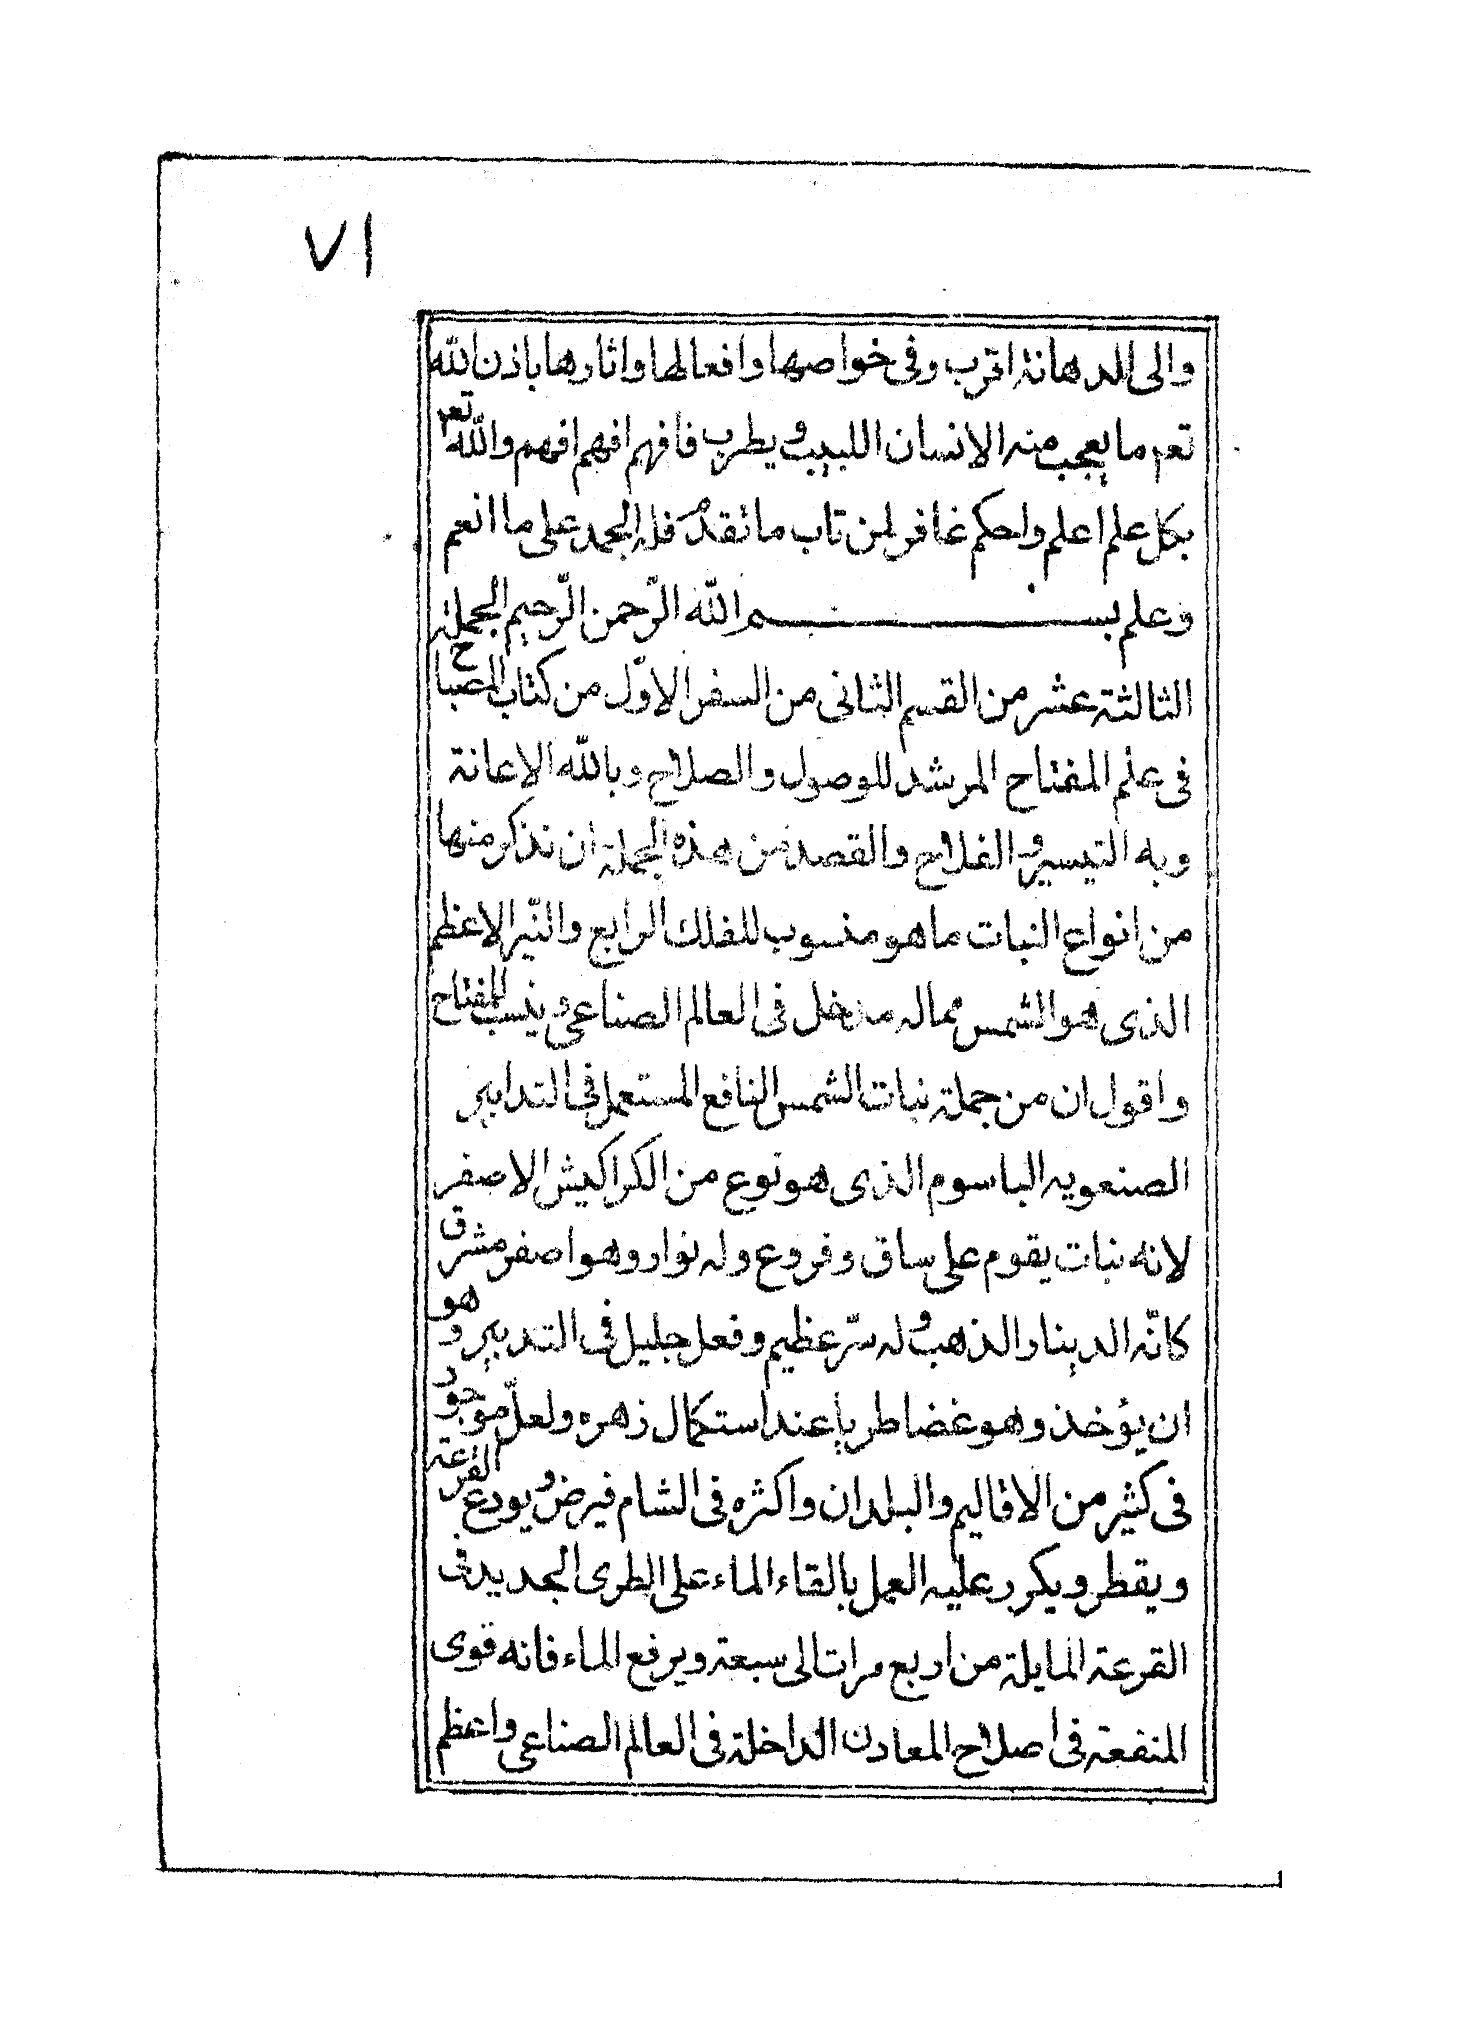 ٧١
والى الدهانة اقرب وفى خواصها وافعالها واثارها باذن الله
تعم ما يعجب منه الانسان اللبيب ويطرب فافهم افهم افهم والله تعم
بكل علم اعلم واحكم غافر لمن تاب ما تقدم فله الحمد على ما انعم
وعلم بسم الله الرّحمن الرّحيم الجملة
الثالثة عشر من القسم الثانى من السفر الاوّل من كتاب المصباح
فى علم المفتاح المرشد للوصول والصلاح وبالله الاعانة
وبه التيسير والفلاح والقصد من هذه الجملة ان نذكر منها
من انواع النبات ما هو منسوب للفلك الرابع والنّير الاعظم
الذى هو الشمس مما له مدخل فى العالم الصناعى وينسب للمفتاح
واقول ان من جملة نبات الشمس النافع المستعمل فى التدابير
الصنعويه الباسوم الذى هو نوع من الكراكيش الاصفر
لانه نبات يقوم على ساق وفروع وله نوار وهو اصفر مشرق
كانّه الدينار والذهب وله سرّ عظيم وفعل جليل فى التدبير وهو
ان يؤخذ وهو غضا طريا عند استكمال زهره ولعلّ موجود
فى كثير من الاقاليم والبلدان واكثره فى الشام فيرض ويودع القرعة
ويقطر ويكرر عليه العمل بالقاء الماء على الطرى الجديد فى
القرعة المايلة من اربع مرات الى سبعة ويرفع الماء فانه قوى
المنفعة فى اصلاح المعادن الداخلة فى العالم الصناعى واعظم